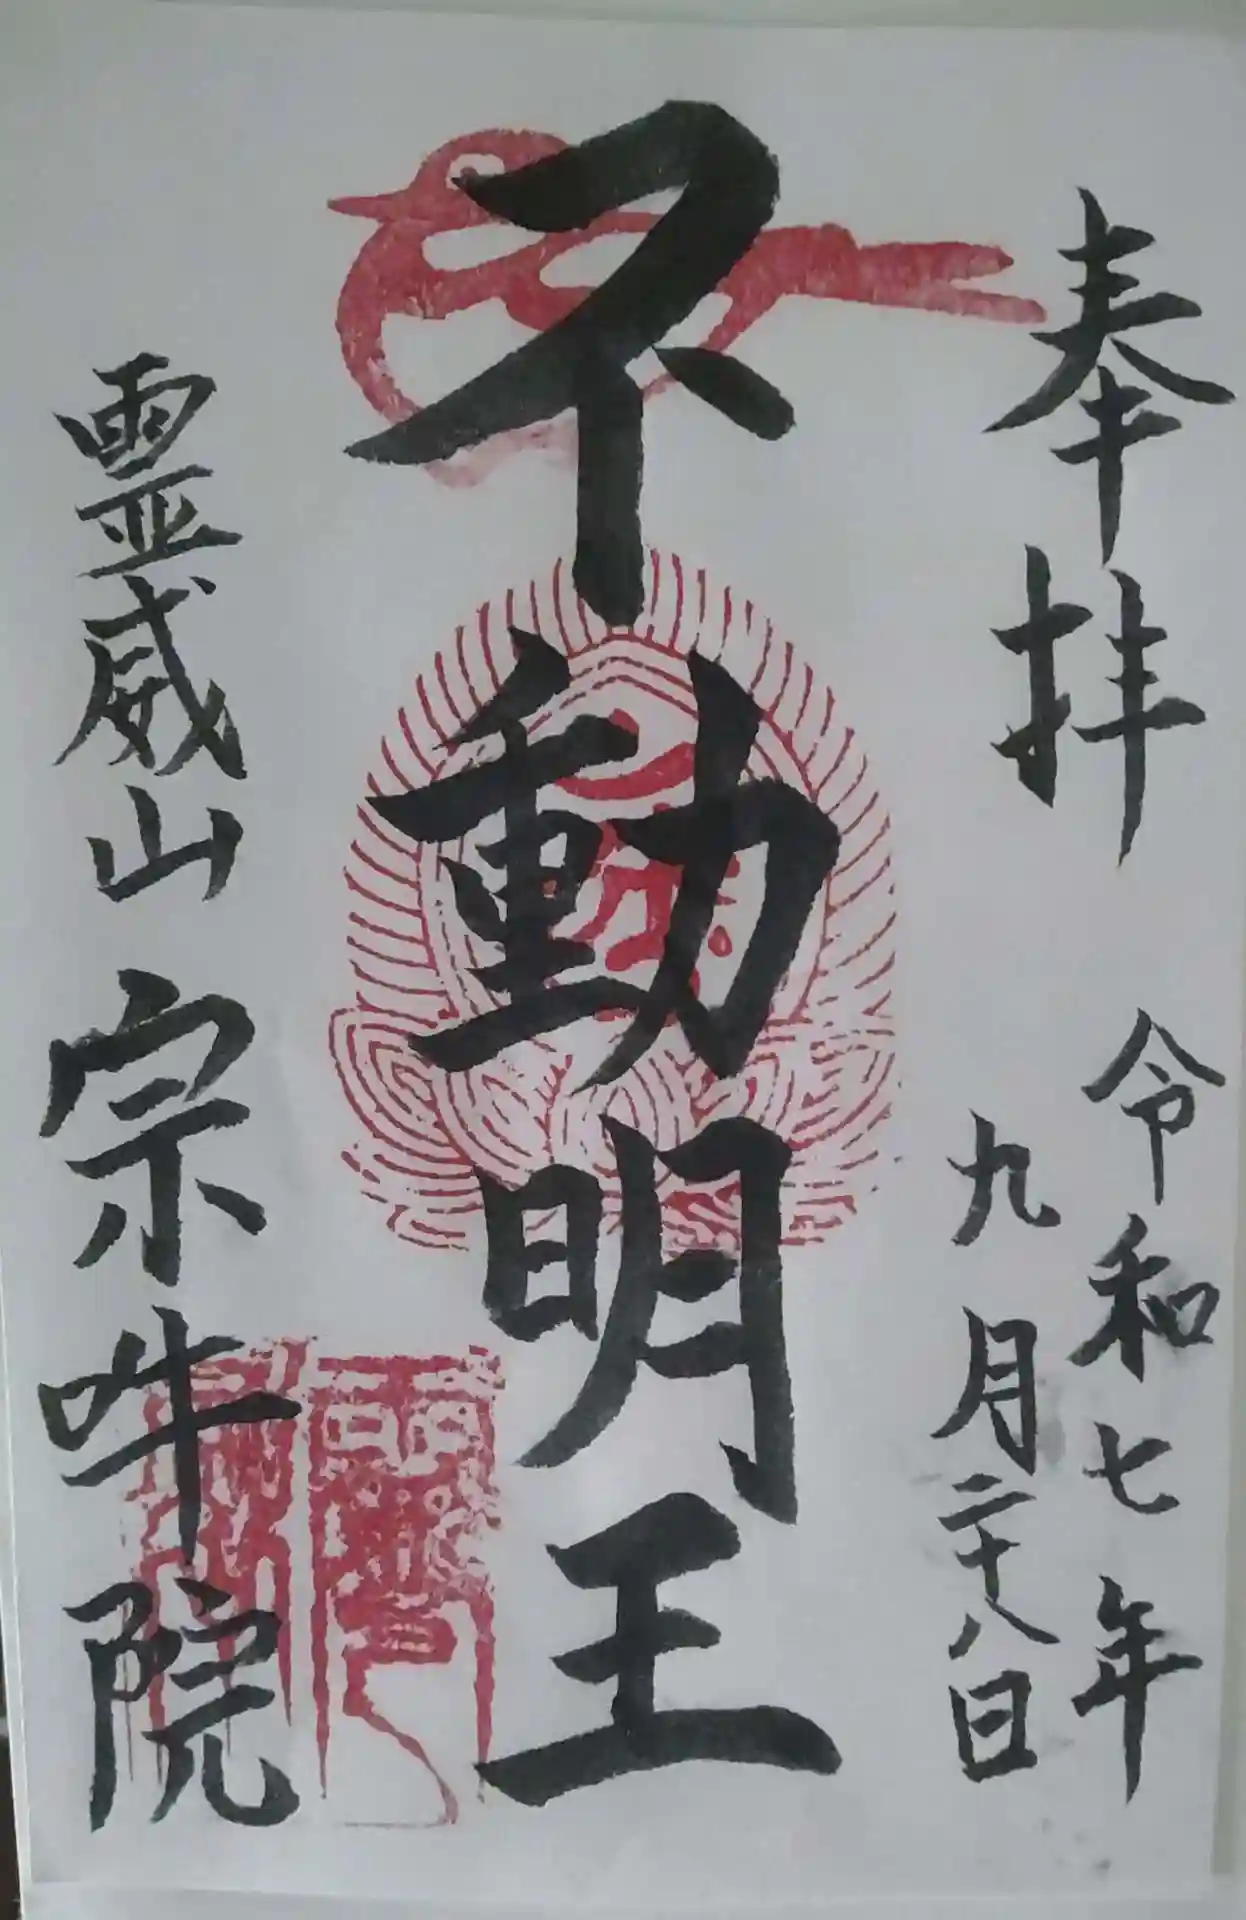 奉拝
令和七年
九月二十八日
不動明王
霊威山宗吽院